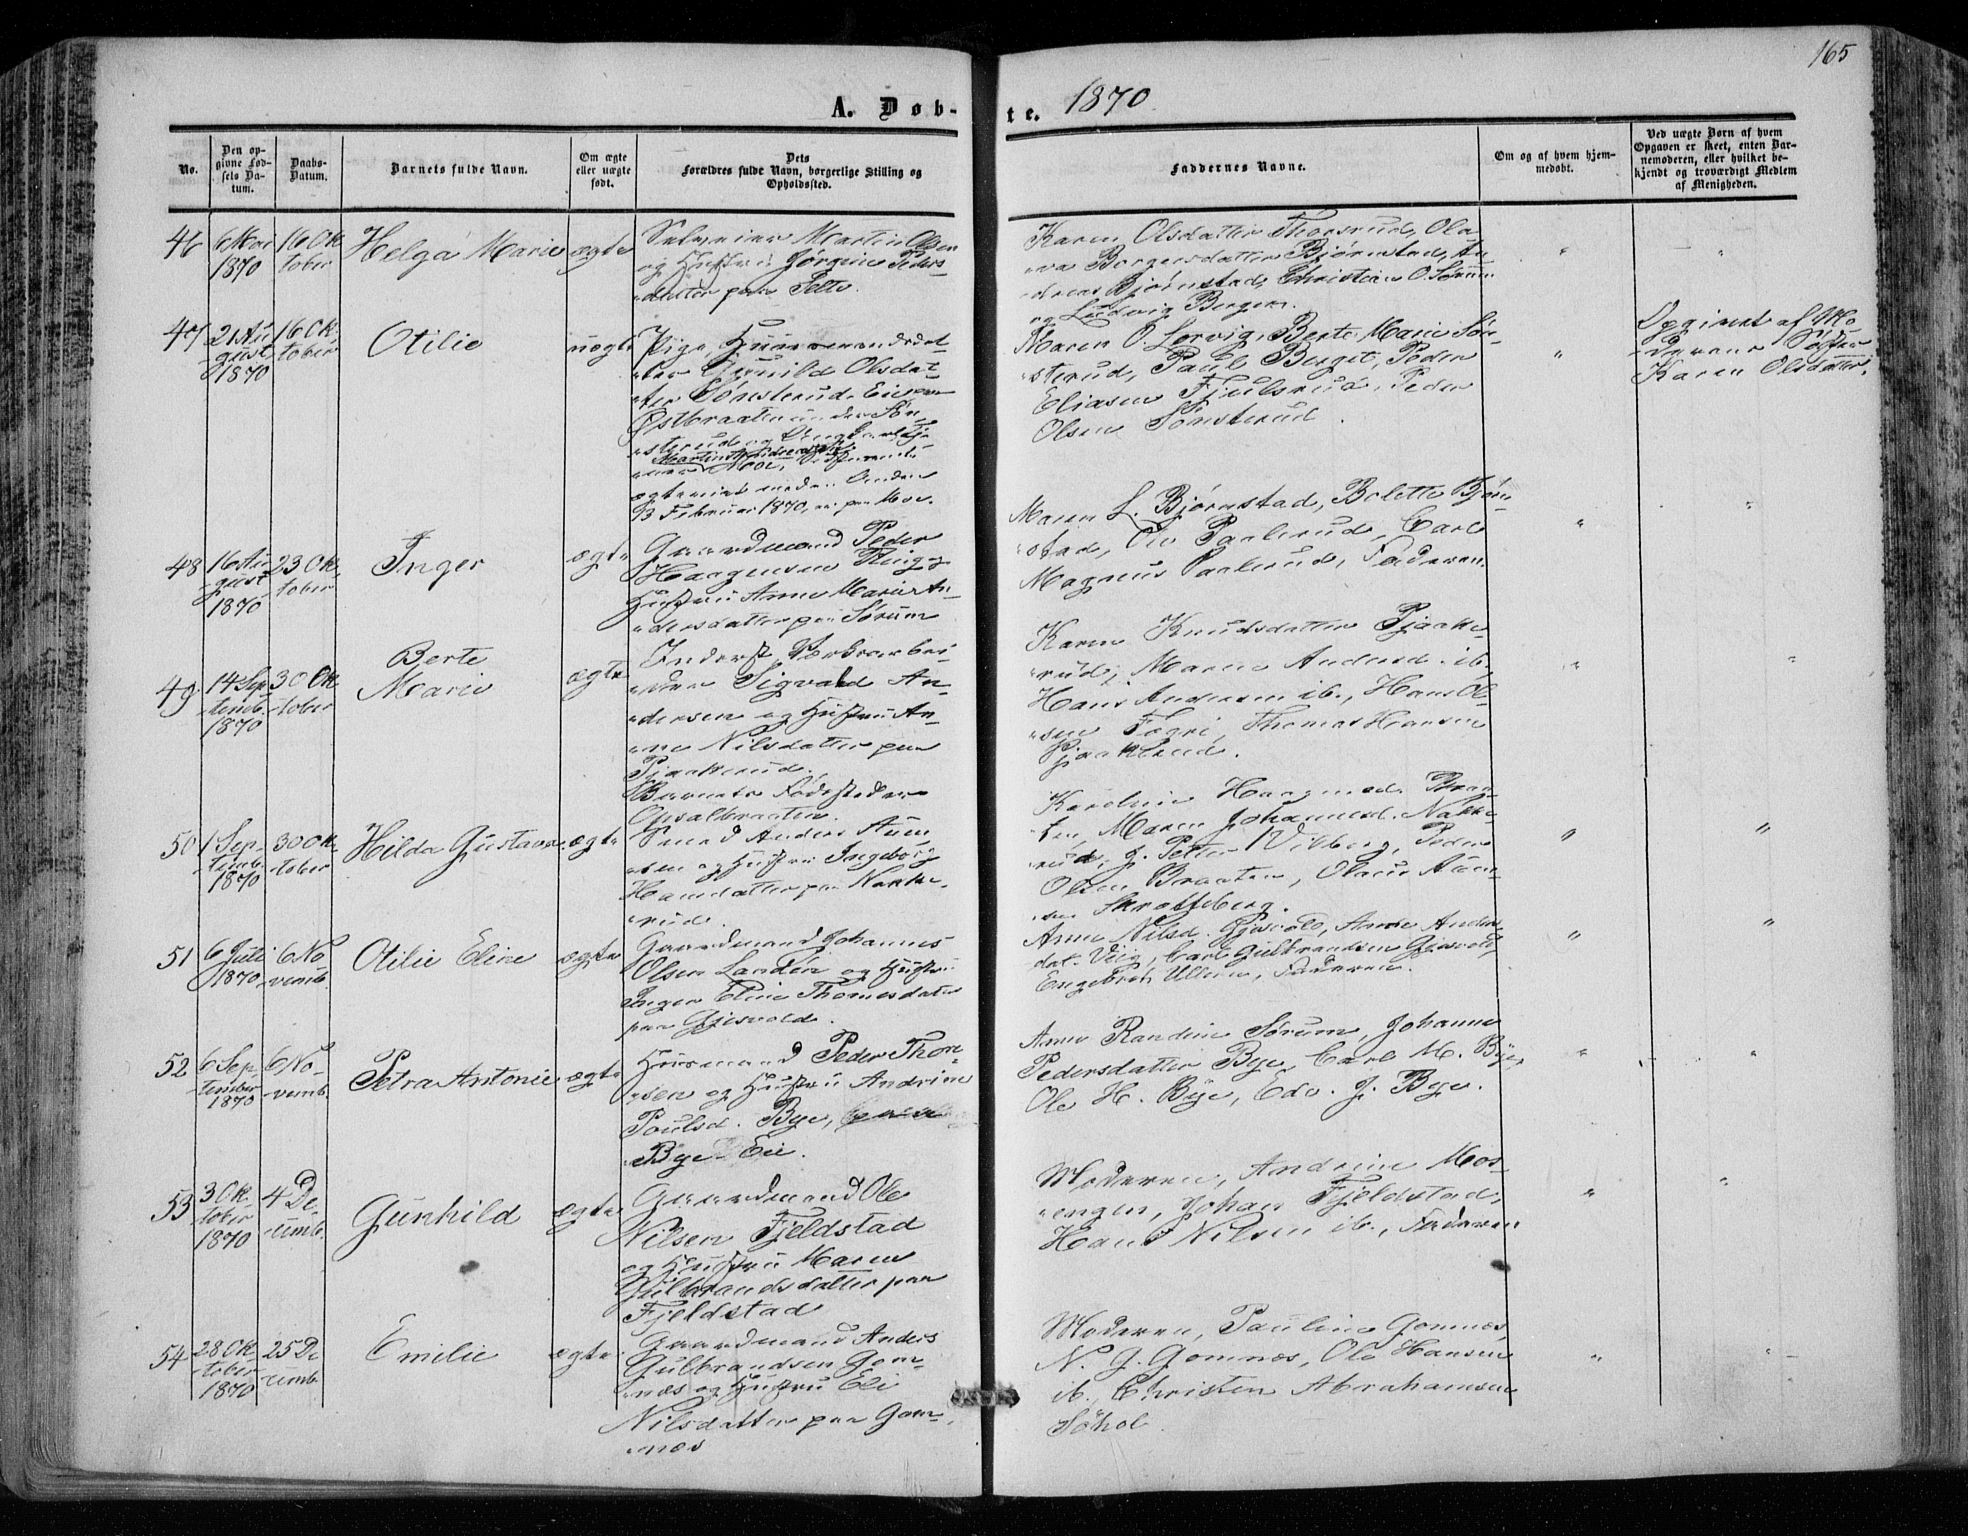 165
A. Døb-
te. 1870.
No.
Den op-
givne Fød-
sels Da-
tum.
Daabs-
Datum.
Barnets fulde Navn.
Om ægte
eller uægte
født.
Dets
Forældres fulde Navn, borgerlige Stilling og
Opholdssted.
Faddernes Navne.
Om og af hvem hjem-
medøbt.
Ved uægte Børn af hvem
Opgaven er skeet, enten Bar-
nemoderen, eller hvilket be-
kjendt og troværdigt Medlem
af Menigheden.
46
6 Mai
1870
16 Ok
tober
Helga Marie
ægte
Selveier Martin Olsen
og Hustru Jørgine Peders-
datter paa
Karen Olsdatter Thorsrud, Ola-
va Borgersdatter Bjørnstad, An-
dreas Bjørnstad, Christian O. Sørum
og Ludvig Berger.
"
"
47
21 Au-
gust
1870
16 Ok-
tober
Otilie
uægte
Pige, Huusmandsdat-
ter Gunild Olsdat-
ter Sønsterud Eie paa
Østbraaten under Søn-
sterud og
Martin
med Anden
13 Februar 1870, paa Moe.
Maren O. Lervig, Berte Marie Søn-
sterud, Paul Berget, Peder
Eliasen Fjulsrud, Peder
Olsen Sønsterud.
"
Opgivet af Mo-
derens Søster
Karen Olsdatter.
48
16 Au-
gust
1870
23 Ok-
tober
Inger
ægte
Gaardmand Peder
Haagensen Ring og
Hustru Anne Marie An-
dersdatter paa Sørum
Maren L. Bjørnstad, Bolette Bjørn-
stad, Ole Paalerud, Carl
Magnus Paalerud, Faderen.
"
"
49
14 Sep-
temb.
1870
30 Ok
tober
Berte
Marie
ægte
Inderst Værksarbei-
der Sigvald An-
dersen og Hustru An-
ne Nilsdatter paa
Pjaakerud.
Barnets Fødested er
Opsalbraaten.
Karen Knudsdatter Pjaake-
rud, Maren Andersd. ib.,
Hans Andersen ib., Hans Ol-
sen Fagri, Thomas Hansen
Pjaakerud.
"
"
50
1 Sep-
temb.
1870
30 Ok-
tober
Hilda Gustava
ægte
Smed Anders Aum-
ten og Hustru Ingeborg
Hansdatter paa Nakke-
rud.
Karoline Haagensd. Braa-
ten, Maren Johannesd. Nakke-
rud, J. Petter Vikberg, Peder
Olsen Braaten, Olaus
"
"
51
6 Juli
1870
6 No-
vemb.
Otilie Eline
ægte
Gaardmand Johannes
Olsen Landén og Hustru
Inger Eline Thomesdatter
paa Gjesvold.
Anne Nilsd. Gjesvold, Anne Anders-
dat. Viig, Carl Gulbrandsen Gjesvold,
Engebret Ullern, Faderen.
"
"
52
6 Sep-
tember
1870
6 No-
vemb.
Petra Antonie
ægte
Huusmand Peder Thor-
sen og Hustru Andrine
Poulsd. Bye,
Bye Eie.
Anne Randine Sørum, Johanne
Pedersdatter Bye, Carl M. Bye,
Ole H. Bye, Edv. J. Bye.
"
"
53
3 Ok-
tober
1870
4 De-
cemb.
Gunhild
ægte
Gaardmand Ole
Nilsen Fjeldstad
og Hustru Maren
Gulbrandsdatter paa
Fjeldstad
Moderen, Andrine Mos-
engen, Johan Fjeldstad,
Hans Nilsen ib., Faderen
"
"
54
28 Ok-
tober
1870
25 De
cemb.
Emilie
ægte
Gaardmand Anders
Gulbrandsen Gom-
næs og Hustru Eli
Nilsdatter paa Gom-
næs
Moderen, Pauline Gomnæs,
N. J. Gomnæs, Ole Hansen
ib., Christen Abrahamsen
Søhol
"
"